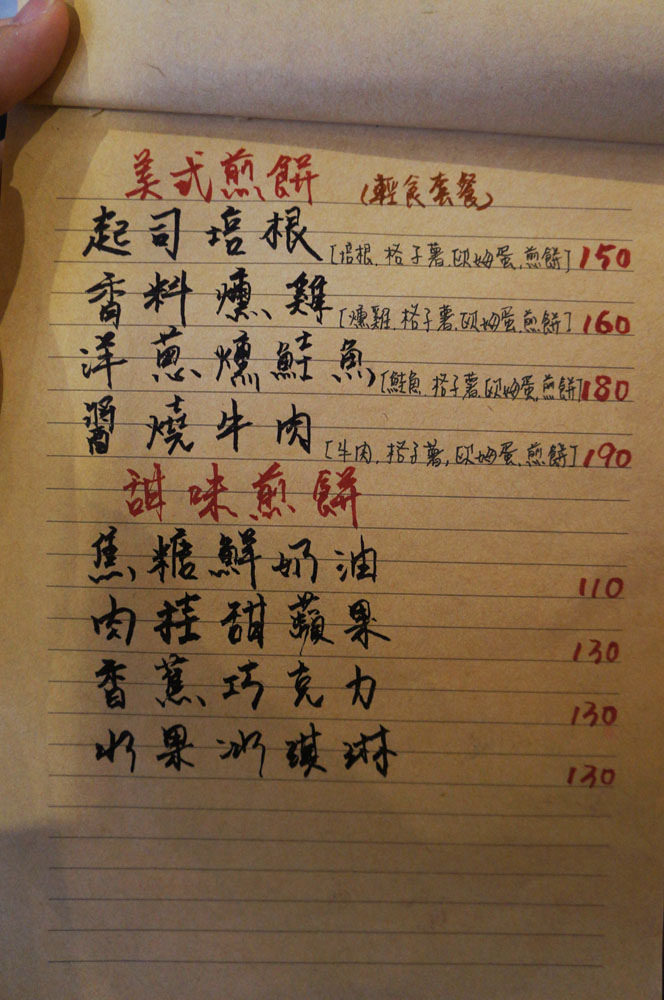 美式煎餅 (輕食套餐)
起司培根 [培根.格子薯.歐姆蛋.煎餅] 150
香料燻雞 [燻雞.格子薯.歐姆蛋.煎餅] 160
洋蔥燻鮭魚 [鮭魚.格子薯.歐姆蛋.煎餅] 180
醬燒牛肉 [牛肉.格子薯.歐姆蛋.煎餅] 190
甜味煎餅
焦糖鮮奶油 110
肉桂甜蘋果 130
香蕉巧克力 130
水果冰琪淋 130